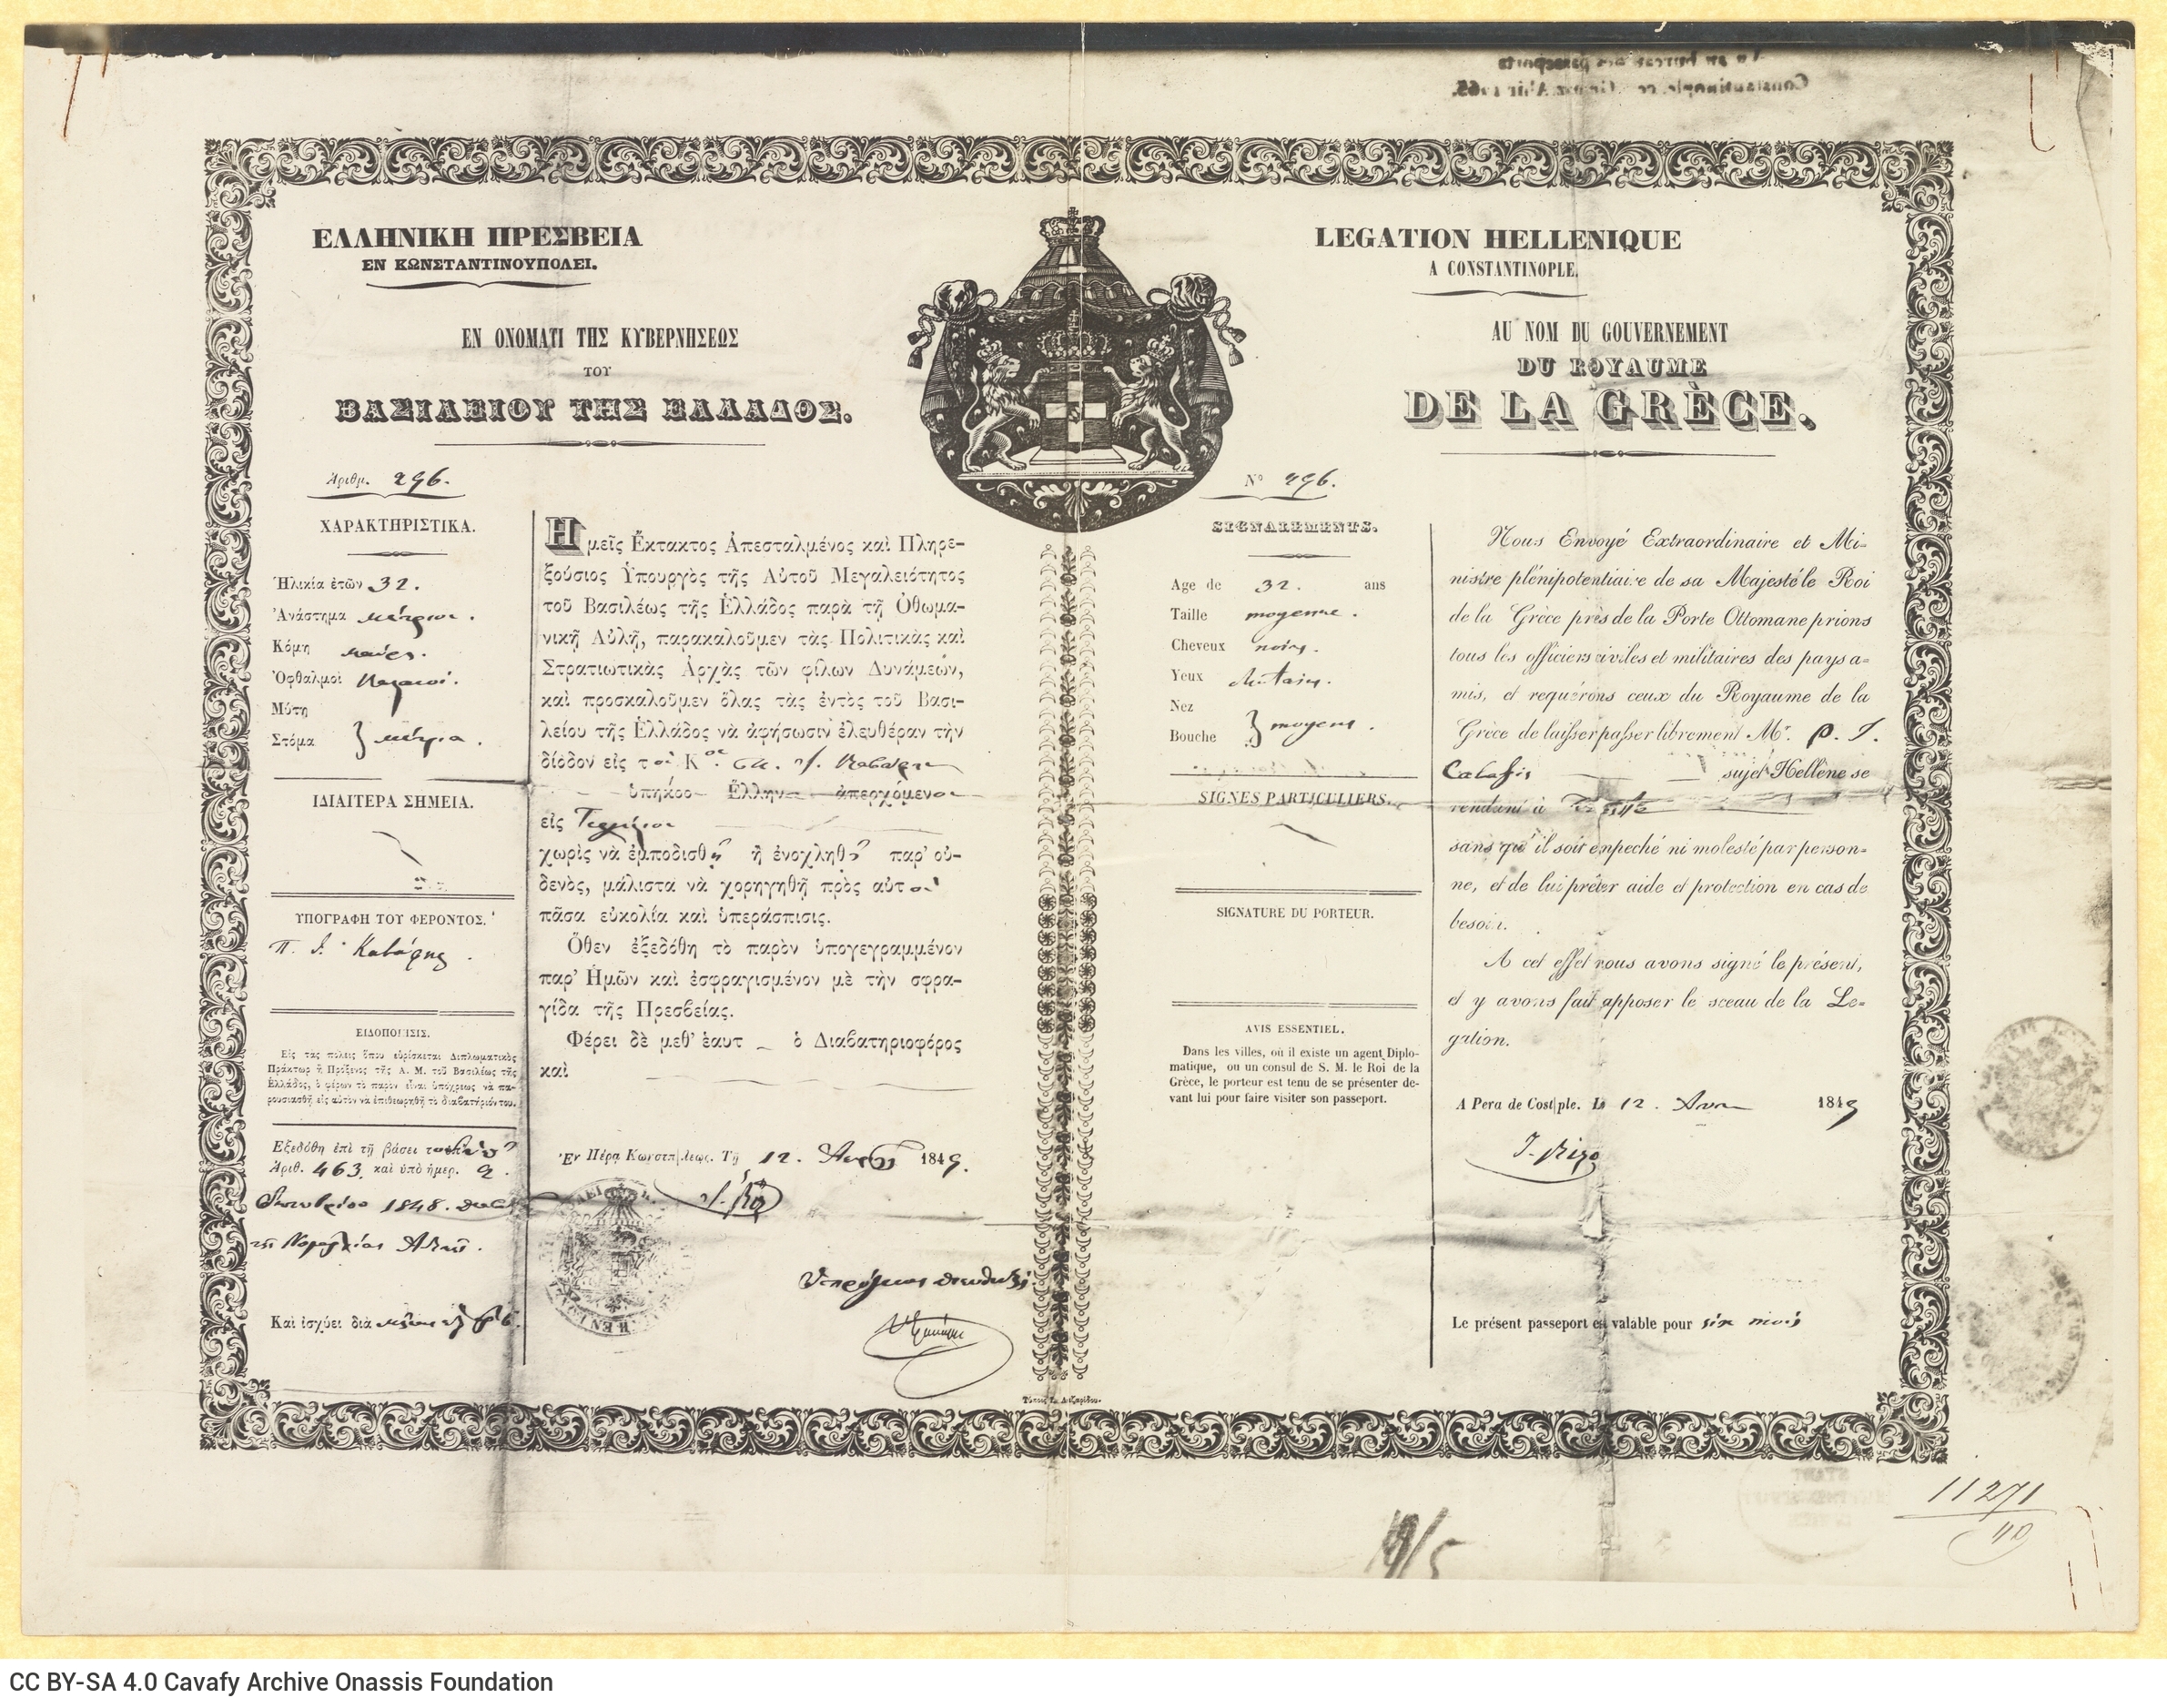 ΕΛΛΗΝΙΚΗ ΠΡΕΣΒΕΙΑ
ΕΝ ΚΩΝΣΤΑΝΤΙΝΟΥΠΟΛΕΙ.
ΕΝ ΟΝΟΜΑΤΙ ΤΗΣ ΚΥΒΕΡΝΗΣΕΩΣ
ΤΟΥ
ΒΑΣΙΛΕΙΟΥ ΤΗΣ ΕΛΛΑΔΟΣ.
Ἀριθμ. 296.
ΧΑΡΑΚΤΗΡΙΣΤΙΚΑ.
Ἡλικία ἐτῶν 32.
Ἀνάστημα μέτριον.
Κόμη μαύρη.
Ὀφθαλμοὶ
Μύτη
Στόμα } μέτρια.
ΙΔΙΑΙΤΕΡΑ ΣΗΜΕΙΑ.
ΥΠΟΓΡΑΦΗ ΤΟΥ ΦΕΡΟΝΤΟΣ.
Π. Ι. Καβάφης.
ΕΙΔΟΠΟΙΗΣΙΣ.
Εἰς τας πόλεις ὅπου εὑρίσκεται Διπλωματικὸς
Πράκτωρ ἢ Πρόξενος τῆς Α. Μ. τοῦ Βασιλέως τῆς
Ἑλλάδος, ὁ φέρων τὸ παρον εἶναι ὑπόχρεως νὰ πα-
ρουσιασθῇ εἰς αὐτὸν νὰ ἐπιθεωρηθῇ τὸ διαβατήριόν του.
Ἐξεδόθη ἐπὶ τῇ βάσει
Ἀριθ. 463. καὶ ὑπὸ ἡμερ. 2.
1848.
τῆς Νομαρχίας
Καὶ ἰσχύει διὰ
Ημεῖς Ἔκτακτος Ἀπεσταλμένος καὶ Πληρε-
ξούσιος Ὑπουργὸς τῆς Αὐτοῦ Μεγαλειότητος
τοῦ Βασιλέως τῆς Ἑλλάδος παρὰ τῇ Ὀθωμα-
νικῇ Αὐλῇ, παρακαλοῦμεν τὰς Πολιτικὰς καὶ
Στρατιωτικὰς Ἀρχὰς τῶν φίλων Δυνάμεων,
καὶ προσκαλοῦμεν ὅλας τὰς ἐντὸς τοῦ Βασι-
λείου τῆς Ἑλλάδος νὰ ἀφήσωσιν ἐλευθέραν τὴν
δίοδον εἰς τὸν Κον. Π. Ι. Καβάφην
ὑπήκοο Ἕλλην ἀπερχόμενον
εἰς Τεργέστην
χωρὶς νὰ ἐμποδισθῇ ἢ ἐνοχληθῇ παρ' οὐ-
δενὸς, μάλιστα νὰ χορηγηθῇ πρὸς αὐτὸν
πᾶσα εὐκολία καὶ ὑπεράσπισις.
Ὅθεν ἐξεδόθη τὸ παρὸν ὑπογεγραμμένον
παρ' Ἡμῶν καὶ ἐσφραγισμένον μὲ τὴν σφρα-
γίδα τῆς Πρεσβείας.
Φέρει δὲ μεθ' ἑαυτ ὁ Διαβατηριοφόρος
καὶ
Ἐν Πέρᾳ Κωνσπ|λεως. Τῇ 12. 1849.
LEGATION HELLENIQUE
A CONSTANTINOPLE.
AU NOM DU GOUVERNEMENT
DU ROYAUME
DE LA GRÈCE.
No 296.
SIGNALEMENTS.
Age de 32. ans
Taille moyenne.
Cheveux noirs.
Yeux
Nez
Bouche } moyens.
SIGNES PARTICULIERS.
SIGNATURE DU PORTEUR.
AVIS ESSENTIEL.
Dans les villes, où il existe un agent Diplo-
matique, ou un consul de S. M. le Roi de la
Grèce, le porteur est tenu de se présenter de-
vant lui pour faire visiter son passeport.
Nous Envoyé Extraordinaire et Mi-
nistre plénipotentiaire de sa Majesté le Roi
de la Grèce près de la Porte Ottomane prions
tous les officiers civiles et militaires des pays a-
mis, et requérons ceux du Royaume de la
Grèce de laisser passer librement Mr. P. I.
Cavafis sujet Hellène se
rendant à Trieste
sans qu'il soit empeché ni molesté par person-
ne, et de lui prêter aide et protection en cas de
besoin.
A cet effet nous avons signé le présent,
et y avons fait apposer le sceau de la Le-
gation.
A Pera de Cost|ple. Le 12. 1849
J. Rizo
Le présent passeport est valable pour six mois
19/5
11271
40
CC BY-SA 4.0 Cavafy Archive Onassis Foundation